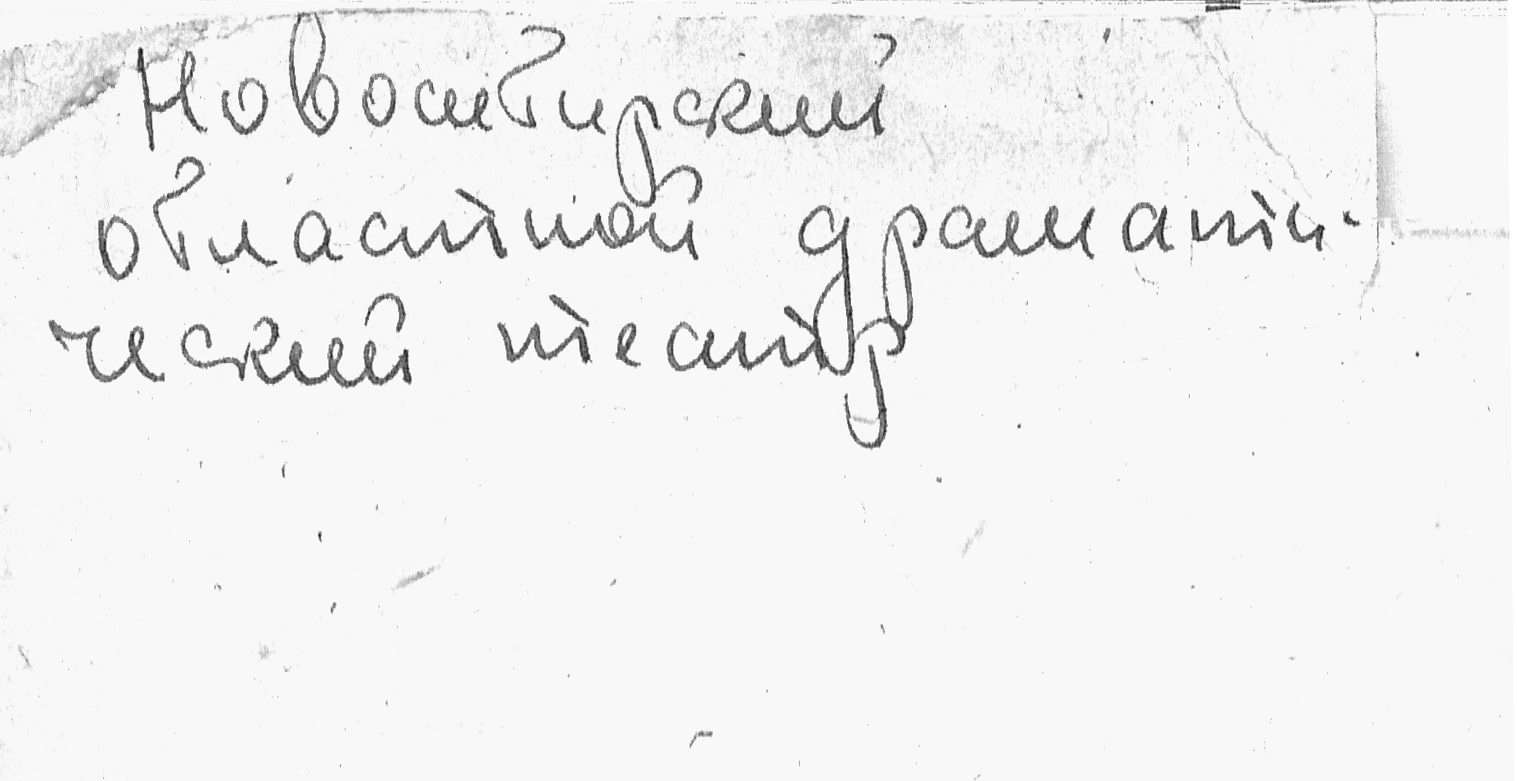 Новосибирский
областной драмати-
ческий театр